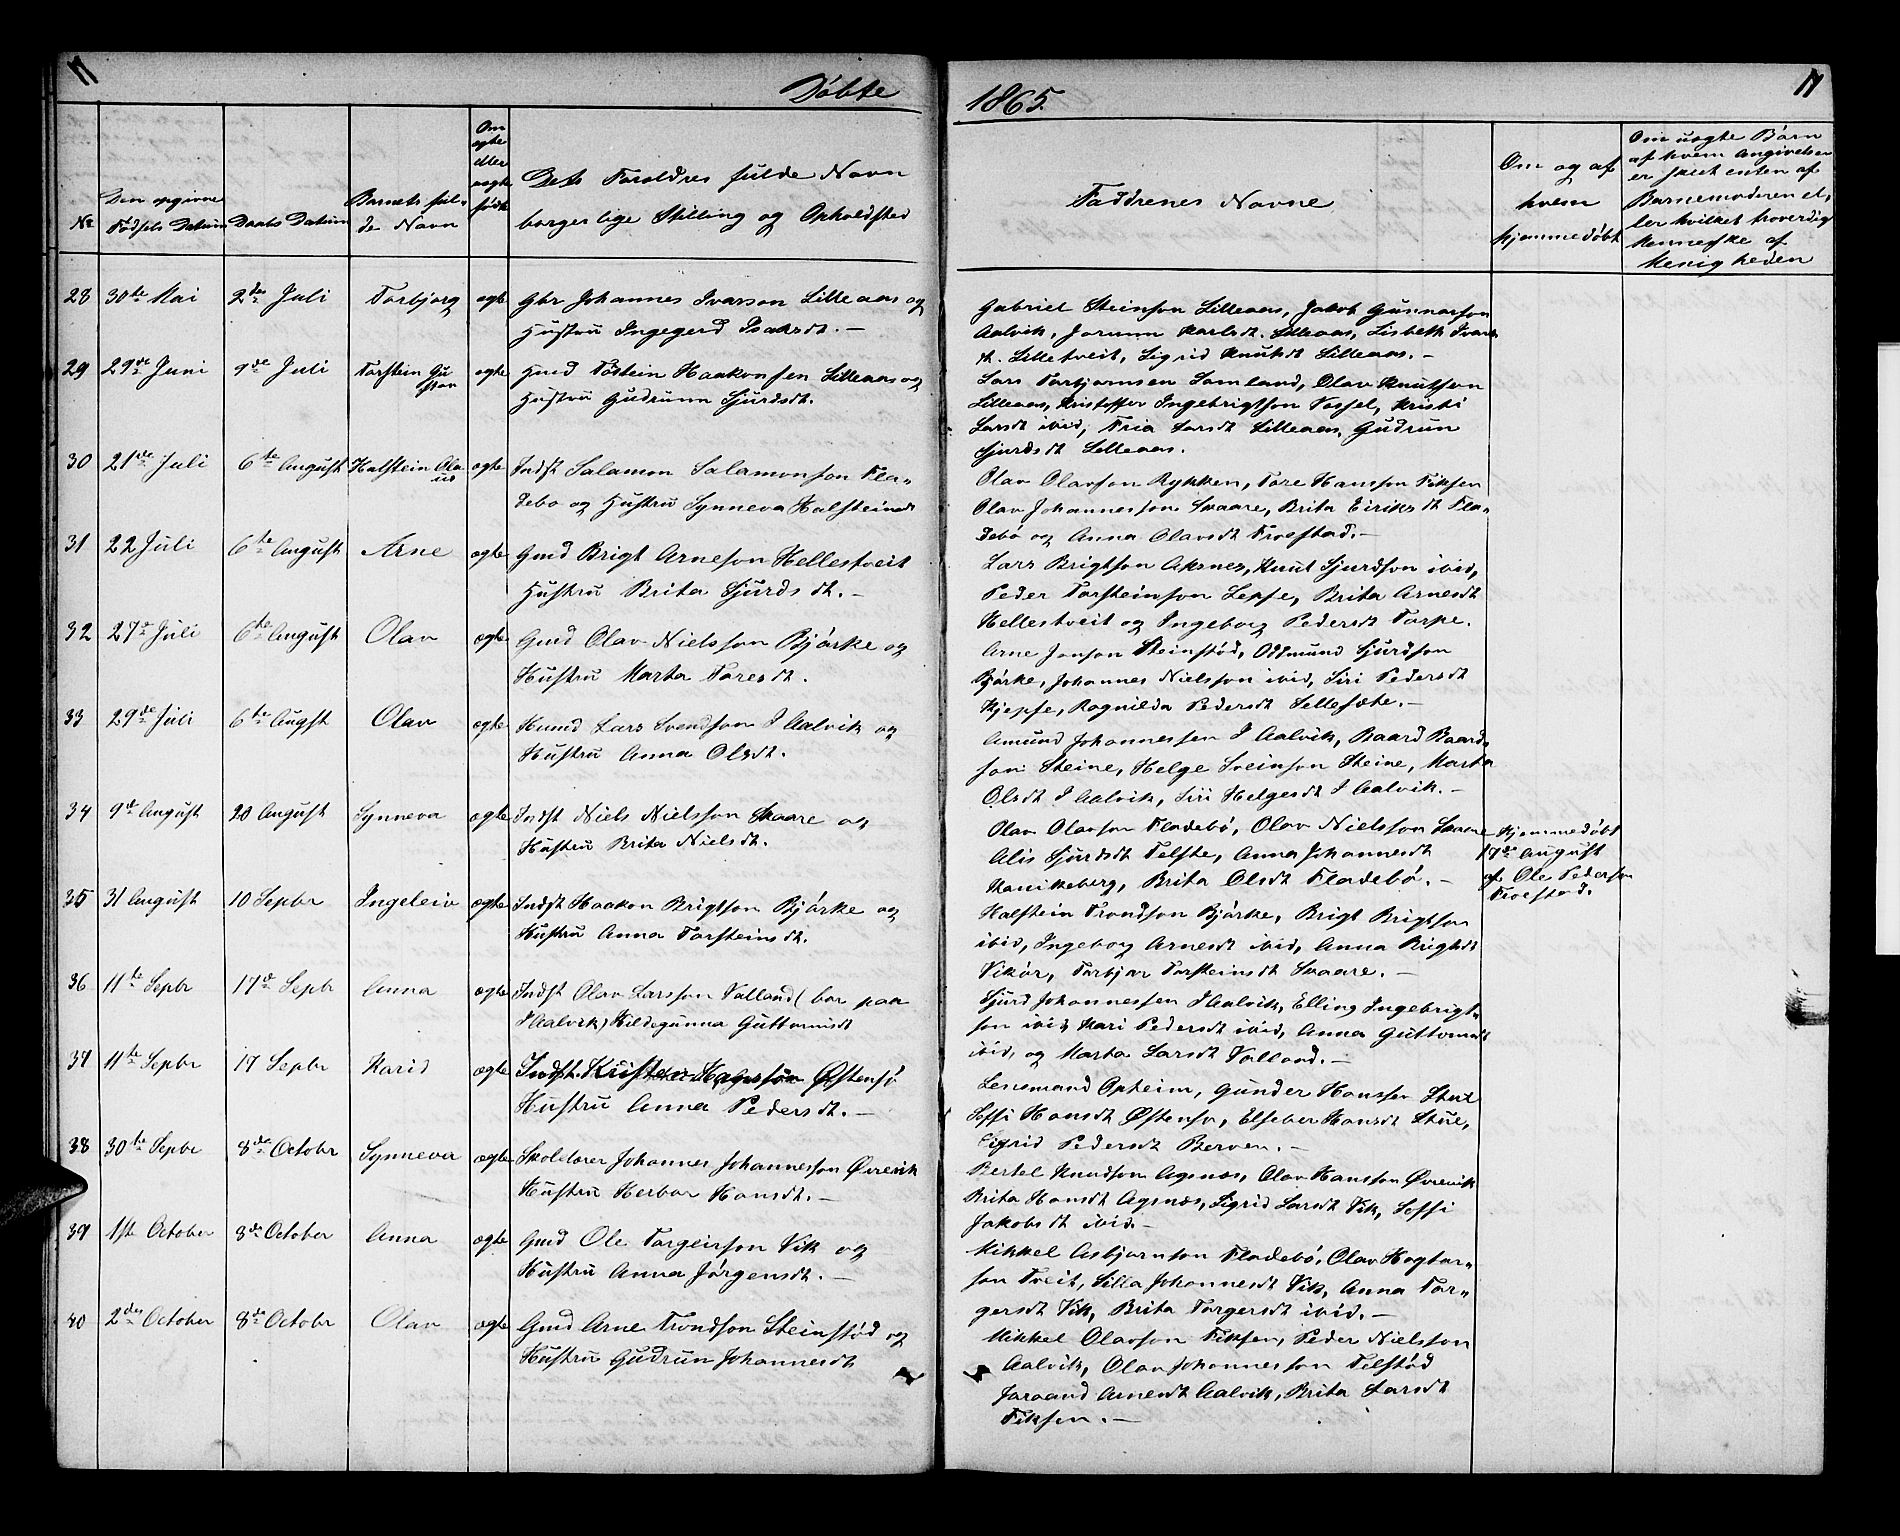 Døbte
1865.
No
Den opgivne Fødsels Datum
Daabs Datum
Barnets fulde Navn
Om ægte eller uægte født
Dets Foreldres fulde Navn borgerlige Stilling og Opholdsted
Faddrenes Navne
Om og af hvem hjemmedøbt
Om uægte Børn af hvem Angivelsen er skeet enten af Barnemoderen eller hvilket troverdig Menneske af Menigheden
28 30te Mai 2den Juli Torbjorg ægte Gbr Johannes Ivarson Lilleaas og
Hustru Ingegerd Isaksdt. —
Gabriel Steinson Lilleaas, Jakob Gunnarson
Aalvik, Jorunn Karlsdt. Lilleaas, Lisbeth Ivars
dt. Lilletveit, Sigrid Knutsdt Lilleaas. —
29 29de Juni 9de Juli Torstein Gustav ægte Gmd Tostein Haakonsen Lilleaas og
Hustru Gudrunn Sjurdsdt.
Lars Torbjornsen Samland, Olav Knutson
Lilleaas, Kristoffer Ingebrigtson Vassel, Kristi
Larsdt ibid, Larsdt Lilleaas, Gudrun
Sjurdsdt Lilleaas.
30 21de Juli 6te August Halstein Olaus ægte Indst Salamon Salamonson Fla-
debo og Hustru Synneva Halsteinsdt
Olav Olavson Rykken, Tore Hansson Fiksen
Olav Johannesson Skaare, Brita Eiriksdt Fla-
debø og Anna Olavsdt Froestad. —
31 22 Juli 6te August Arne ægte Gmd Brigt Arneson Hellestveit
Hustru Brita Sjurdsdt. —
Lars Brigtson Aksnes, Knut Sjurdson ibid,
Peder Torsteinson Sepse, Brita Arnesdt
Hellestveit og Ingeborg Pedersdt Torpe.
32 27de Juli 6te August Olav ægte Gmd Olav Nielsson Bjørke og
Hustru Marta Toresdt.
Arne Jonson Steinstød, Odmund Sjurdson
Bjørke, Johannes Nielsson ibid, Siri Pedersdt
Kjepse, Ragnilda Pedersdt Sellesæte. —
33 29de Juli 6te Augst Olav ægte Husmd Lars Svendson I Aalvik og
Hustru Anna Olsdt.
Amund Johannessen I Aalvik, Baard Baard-
son Steine, Helge Sveinson Steine, Marta
Olsdt I Aalvik, Siri Helgesdt I Aalvik. —
34 9de August 20 August Synneva ægte Indst Niels Nielsson Skaare og
Hustru Brita Nielsdt.
Olav Olavson Fladebø, Olav Nielsson Skaare
Alis Sjurdsdt Telste, Anna Johannesdt
Kanikeberg, Brita Olsdt Fladebø. —
Hjemmedøbt
17de August
af Ole Pederson
Froestad.
35 31 August 10 Sepbr Ingeleiv ægte Indst Haakon Brigtson Bjørke og
Hustru Anna Torsteinsdt.
Halstein Trondson Bjørke, Brigt Brigtson
ibid, Ingeborg Arnesdt ibid, Anna Brigtsdt
Vikør, Torbjor Torsteinsdt Skaare. —
36 11te Sepbr 17de Sepb Anna ægte Indst Olav Larsson Valland (bor paa
I Aalvik) Hildegunna Guttormsdt
Sjurd Johannessen I Aalvik, Elling Ingebrigt-
son ibid, Kari Pedersdt ibid, Anna Guttormsdt
ibid, og Marta Larsdt Valland. —
37 11te Sepbr 17 Sepbr Karid ægte Indst. Østensø
Hustru Anna Pedersdt. —
Lensmand Opheim, Gunder Hanssen
Seffi Hansdt Østensø, Elseber Hansdt Stue,
Sigrid Pedersdt Berven. —
38 30te Sepbr 8de Octobr Synneva ægte Skolelærer Johannes Johannesson Øvrevik
Hustru Herbor Hansdt. —
Bertel Knudson Agsnæs, Olav Hansson Øvrevik
Brita Hansdt Agsnæs, Sigrid Larsdt Vik, Seffi
Jakobsdt ibid. —
39 1ste October 8de October Anna ægte Gmd Ole Torgeirson Vik og
Hustru Anna Jørgensdt. —
Mikkel Asbjornson Fladebø, Olav Hogtor-
son Tveit, Silla Johannesdt Vik, Anna Tor-
gersdt Vik, Brita Torgersdt ibid. —
40 2den October 8de Octobr Olav ægte Gmd Arne Trondson Steinstød og
Hustru Gudrun Johannesdt
Mikkel Olavson Fiksen, Peder Nielsson
Aalvik, Olav Johannesson Telstød
Joraand Arnesdt Aalvik, Brita Larsdt
Fiksen. —